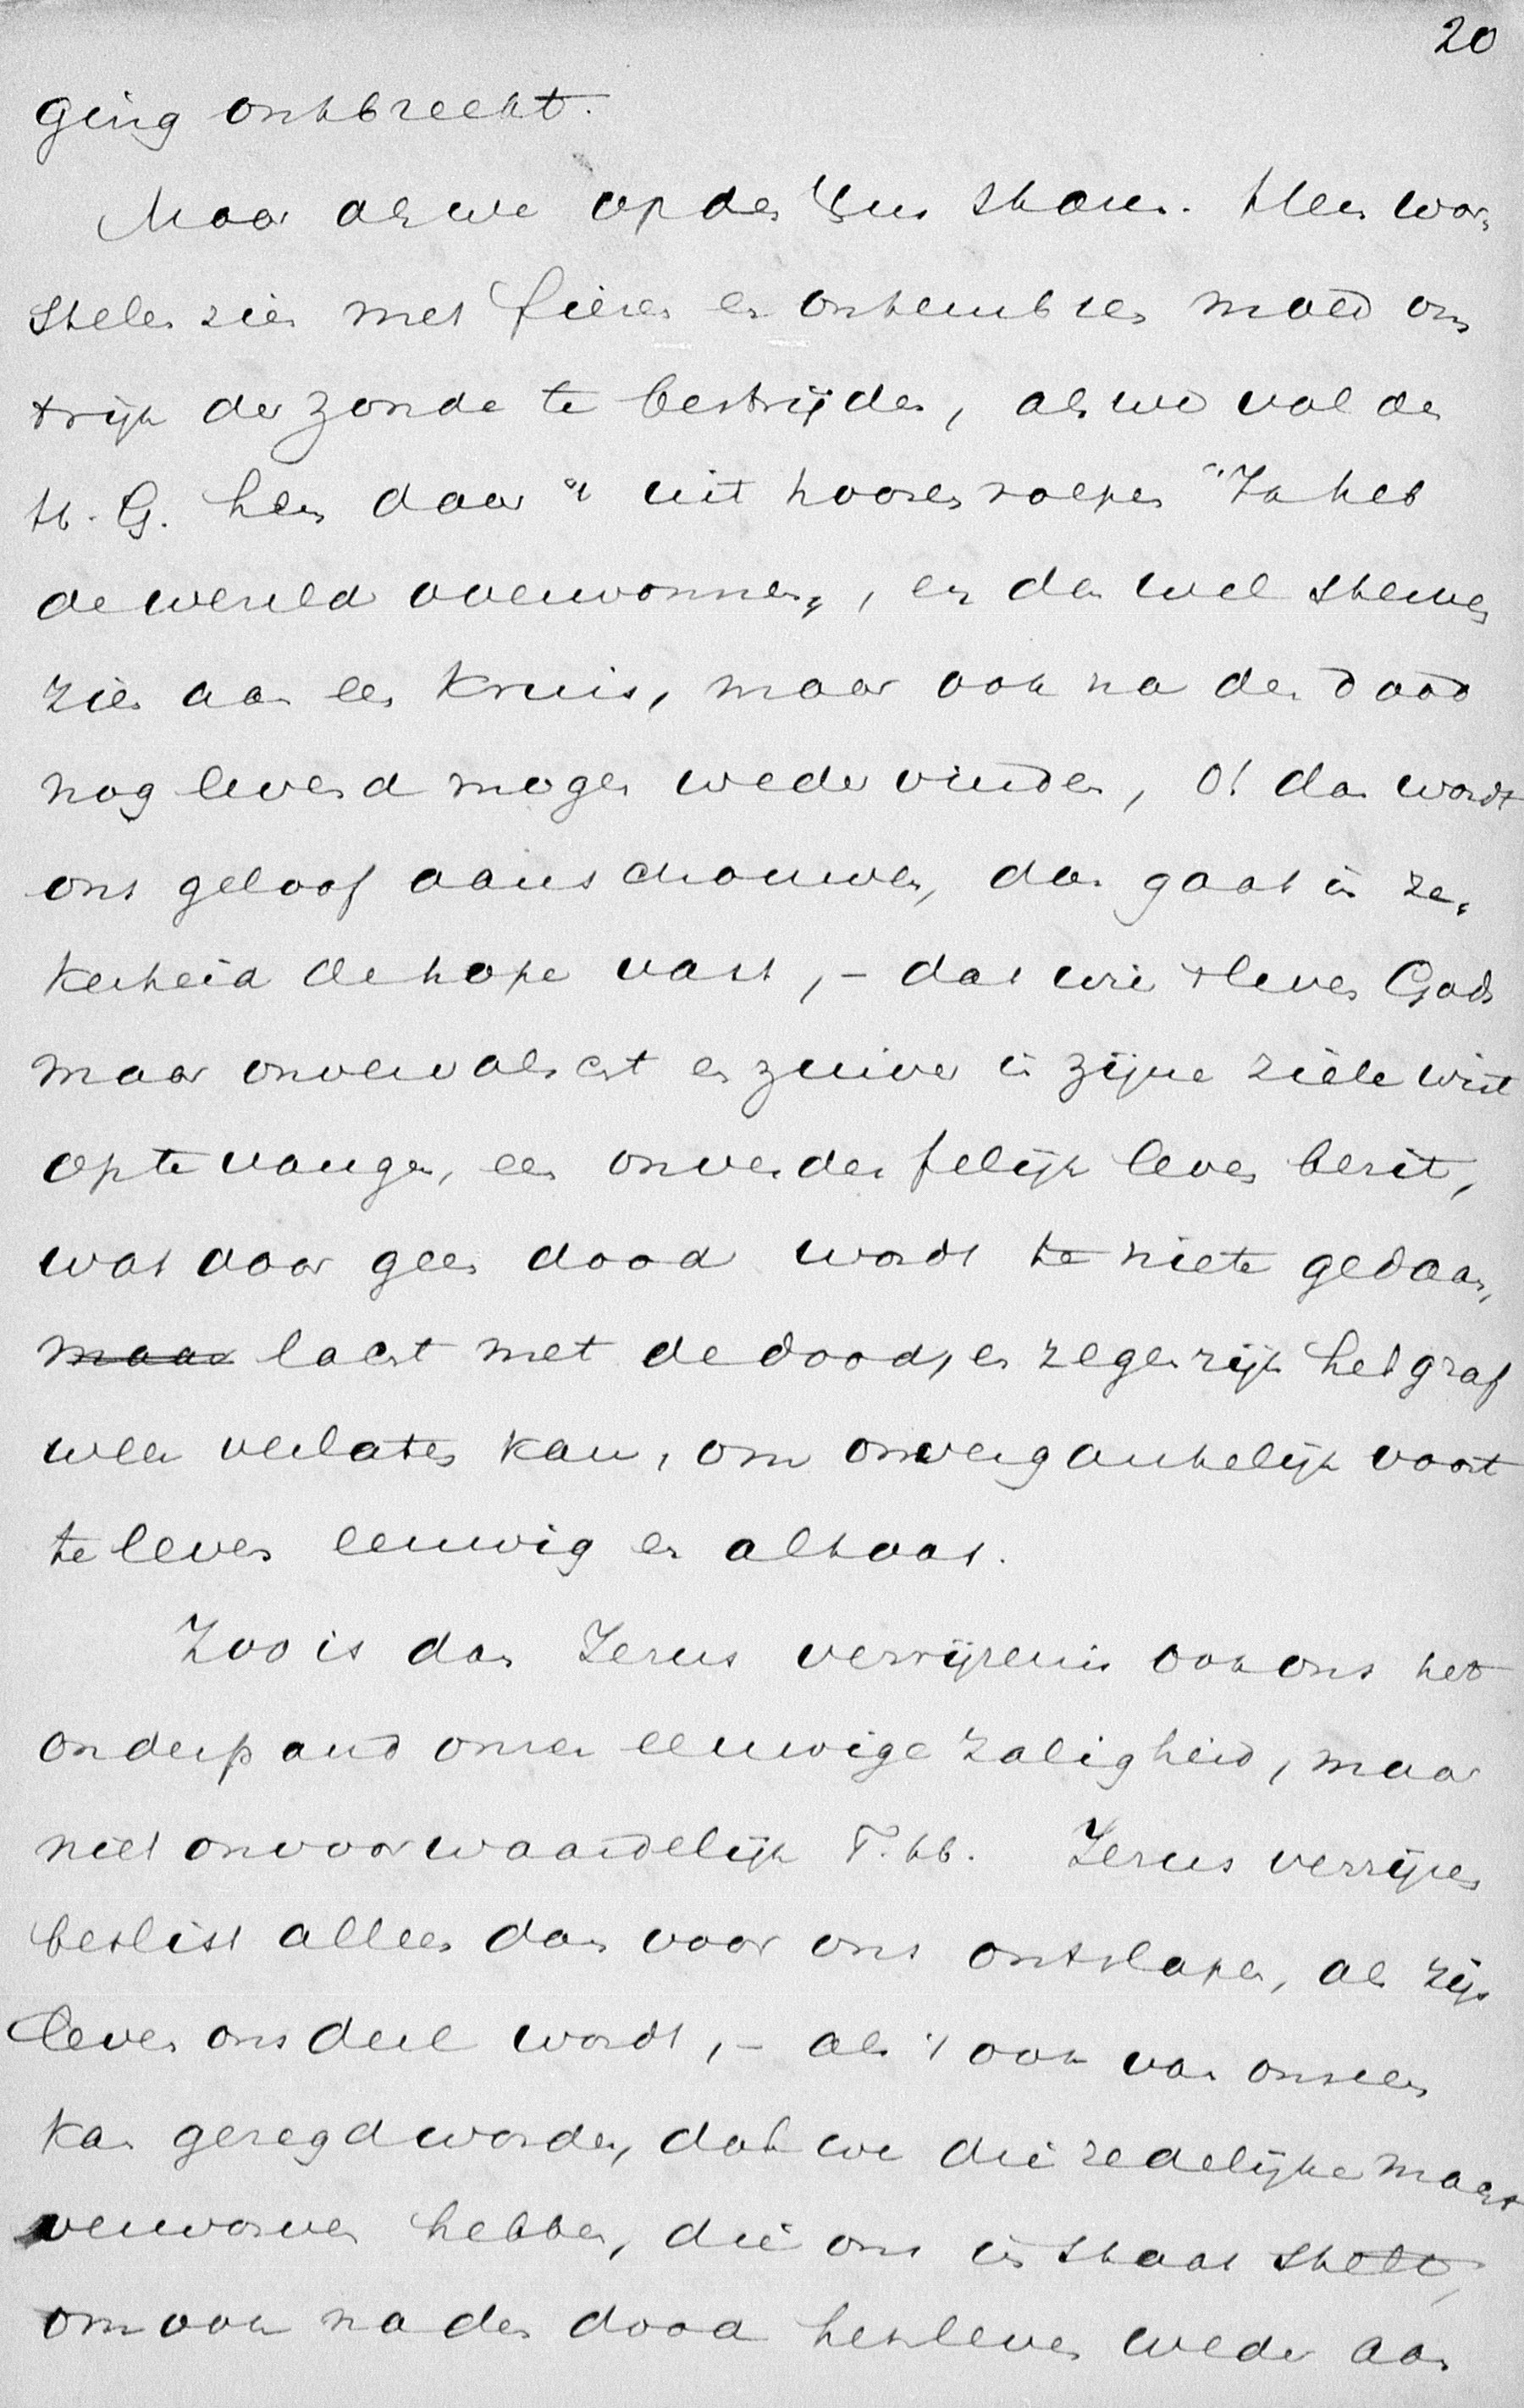 20
ging ontbreekt.
Maar als we op den Heer staren. Hem wor-
stelen zien met fieren en ontembren moed om
trijk der zonde te bestrijden, als we vol des
H. G. hem daar 't uit hooren roepen "Ik heb
de wereld overwonnen", en dan wel sterven
zien aan een kruis, maar ook na den dood
nog levend mogen weder vinden, O! dan wordt
ons geloof aanschouwen, dan gaat in ze-
kerheid de hope vast, – dat wie t leven Gods
maar onvervalscht en zuiver in zijne ziele wist
op te vangen, een onverderfelijk leven bezit,
wat door geen dood wordt te niete gedaan,
maar lacht met de dood, en zegenrijk het graf
weer verlaten kan, om onvergankelijk voort
te leven eeuwig en altoos.
Zoo is dan Jezus verrijzenis ook ons het
onderpand onzer eeuwige zaligheid, maar
niet onvoorwaardelijk T. hb. Jezus verrijzen
beslist alleen dan voor ons ontslapen, als zijn
leven ons deel wordt, – als 't ook van onzen
kan gezegd worden, dat we die zedelijke macht
verworven hebben, die ons in staat stelt,
om ook na den dood het leven weder aan